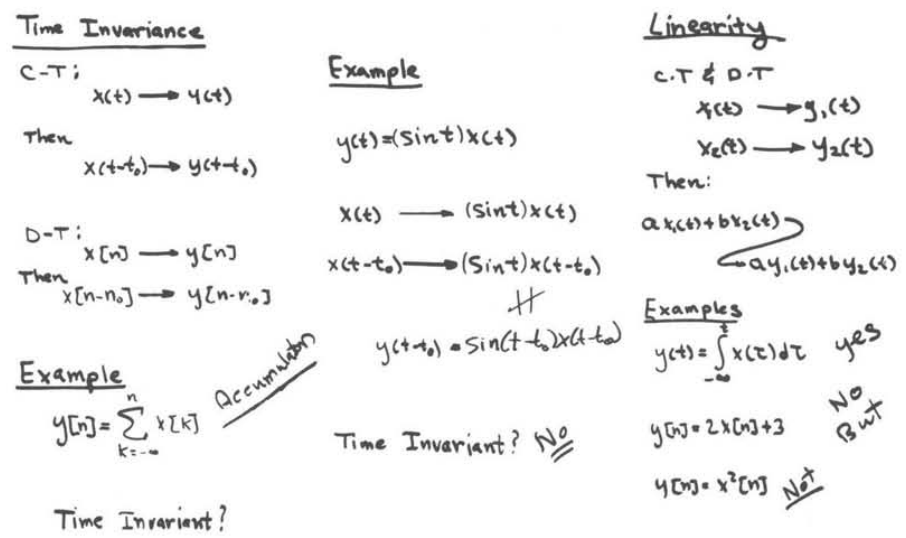 Time Invariance
C-T:
x(t) → y(t)
Then
x(t-t₀) → y(t-t₀)
D-T:
x[n] → y[n]
Then
x[n-n₀] → y[n-n₀]
Example
y[n] = Σ_{k=-∞}^{n} x[k]
Accumulator
Time Invariant?
Example
y(t)=(Sint)x(t)
x(t) → (Sint)x(t)
x(t-t₀) → (Sint)x(t-t₀)
≠
y(t-t₀) = Sin(t-t₀)x(t-t₀)
Time Invariant? No
Linearity
C.T & D.T
x₁(t) → y₁(t)
x₂(t) → y₂(t)
Then:
ax₁(t)+bx₂(t)
→ ay₁(t)+by₂(t)
Examples
y(t) = ∫_{-∞}^{t} x(τ)dτ yes
y[n] = 2x[n]+3 No But
y[n] = x²[n] Not